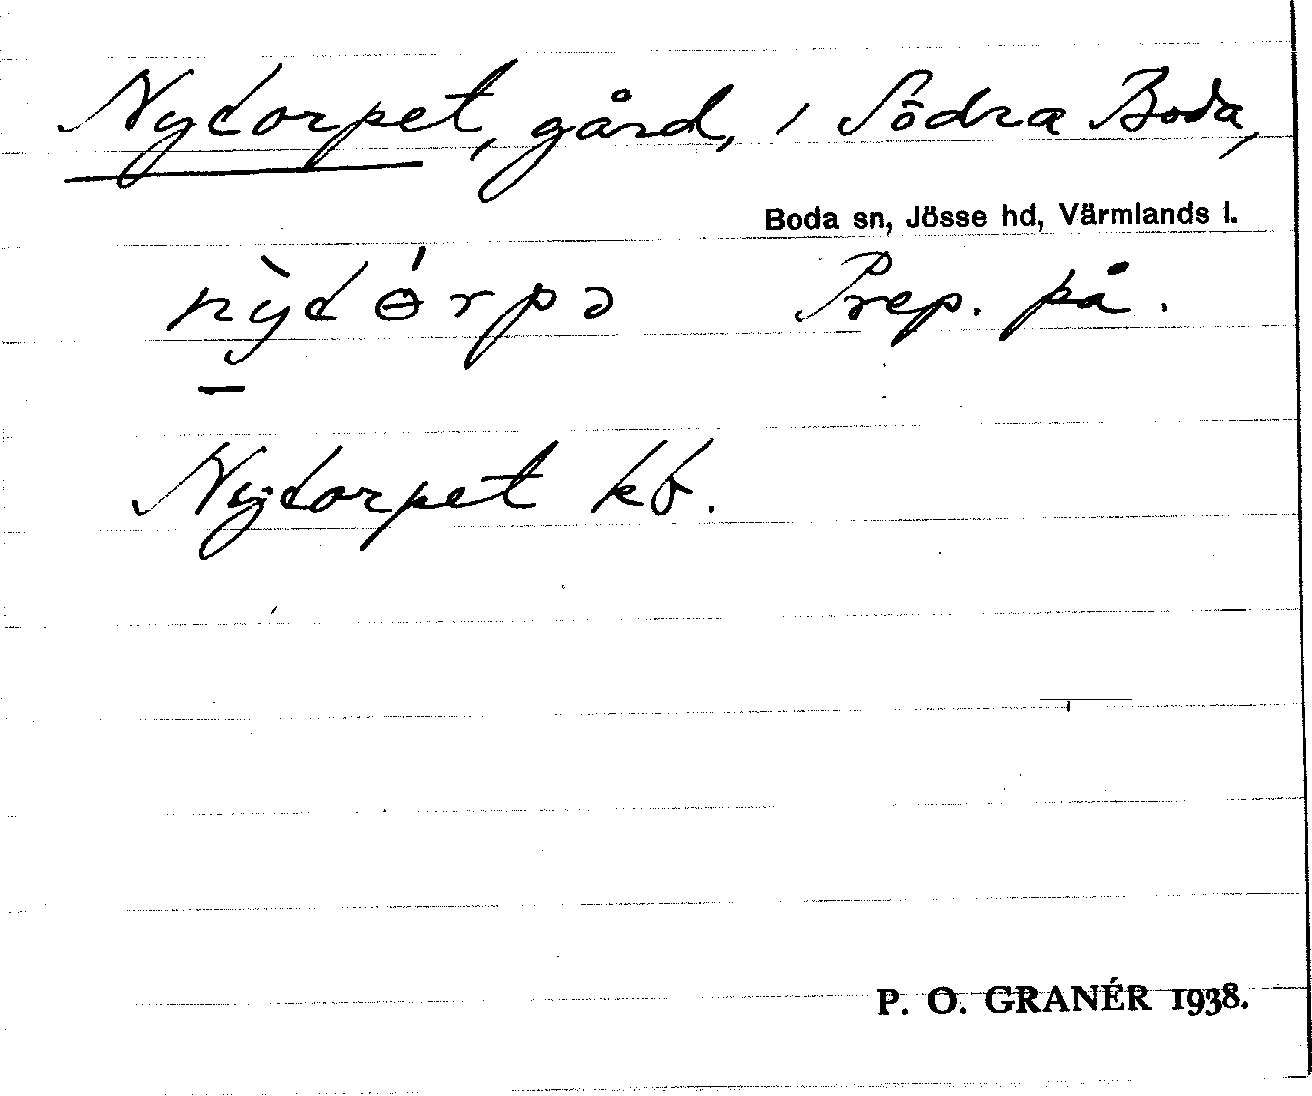 Nytorpet, gård, i Södra Boda,
Boda sn, Jösse hd, Värmlands l.
nỳtɵ́rpə Prep. på.
Nytorpet kb.
P. O. GRANÉR 1938.